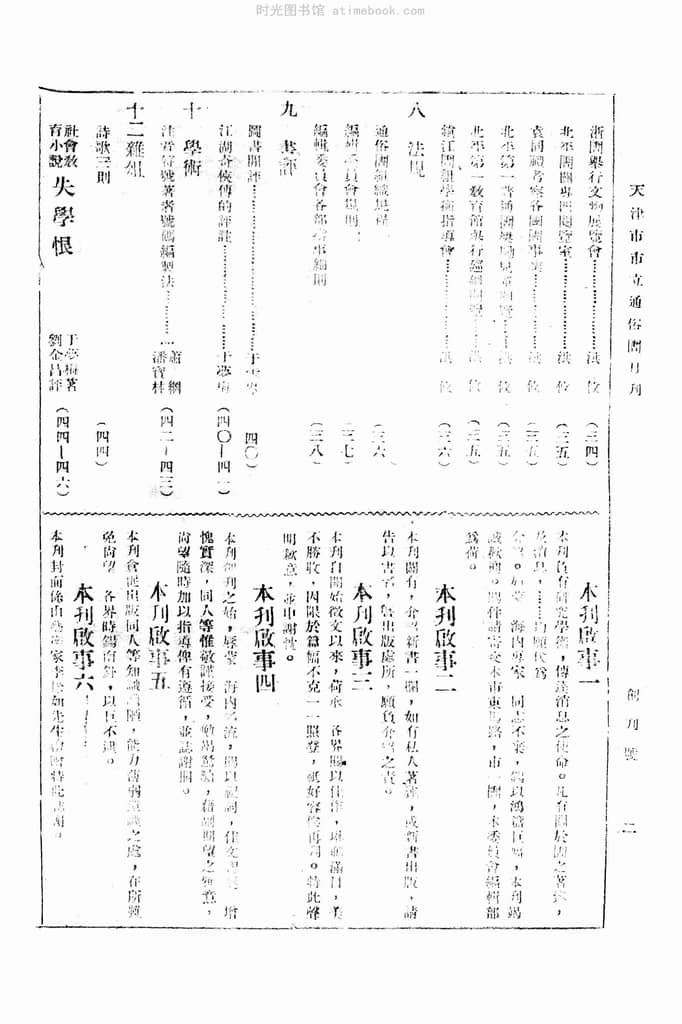 时光图书馆 atimebook.com
天津市市立通俗圕月刊
創刊號
二
浙圕舉行文物展覽會………洪 佼 (三四)
北平圕圕專四閱覽室………洪 佼 (三五)
袁同禮考察各圕圕事業………洪 佼 (三五)
北平第一普通圕 兒童閱覽………洪 佼 (三五)
北平第一教育館舉行巡迴圕………洪 佼 (三五)
鎮江圕組學術指導會………洪 佼 (三六)
八 法規
通俗圕組織規程 (三六)
編輯委員會規則 (三七)
編輯委員會各部辦事細則 (三八)
九 書評
圕書閒評………于 (四〇)
江湖奇俠傳的評註………于夢梅 (四〇—四一)
十 學術
注音符號著者號碼編製法………蕭 綱 潘寶林 (四二—四三)
十二 雜俎
詩歌三則 (四四)
社會教育小說 失學恨 于夢梅著 劉金昌評 (四四—四六)
本刊啟事一
本刊負有研究學術,傳達消息之使命。凡有關於圕之著述,
及消息,
海內專家 同志不棄,錫以鴻篇巨著,本刊竭
誠歡迎。 請寄交本市東馬路,市一圕,本委員會編輯部
為荷。
本刊啟事二
本刊圕有,介紹新書一欄,如有私人著述,或新書出版,請
告以書名,暨出版處所,願負介紹之責。
本刊啟事三
本刊自開始徵文以來,荷承 各界賜以佳作,琳瑯滿目,美
不勝收,因限於篇幅不克一一照登,祇好容俟再刊。特此聲
明歉意,並申謝忱。
本刊啟事四
本刊創刊之始,辱蒙 海內名流,賜以祝詞,佳文 增
愧實深,同人等惟敬謹接受,勉竭駑駘,藉副期望之殷意,
尚望隨時加以指導俾有遵循,並誌謝悃。
本刊啟事五
本刊倉促出版同人等知識 陋,能力薄弱 之處,在所難
免尚望 各界時錫南針,以匡不逮。
本刊啟事六
本刊封面係由藝術家李 如先生繪贈特此誌謝。